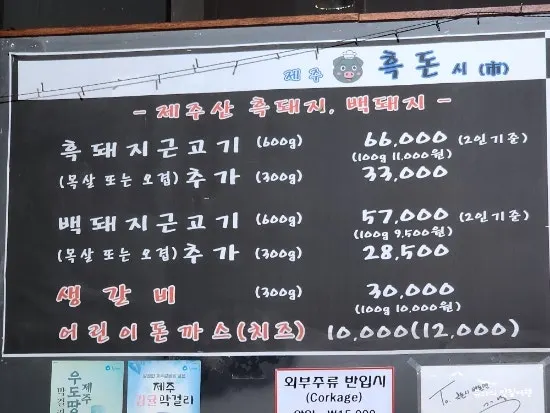 제주 흑돈 시(市)
- 제주산 흑돼지, 백돼지 -
흑돼지근고기 (600g) 66,000 (2인기준)
(100g 11,000원)
(목살 또는 오겹) 추가 (300g) 33,000
백돼지근고기 (600g) 57,000 (2인기준)
(100g 9,500원)
(목살 또는 오겹) 추가 (300g) 28,500
생갈비 (300g) 30,000
(100g 10,000원)
어린이돈까스(치즈) 10,000(12,000)
제주
우도땅콩
막걸리
제주
감귤막걸리
외부주류 반입시
(Corkage)
₩15,000
To.